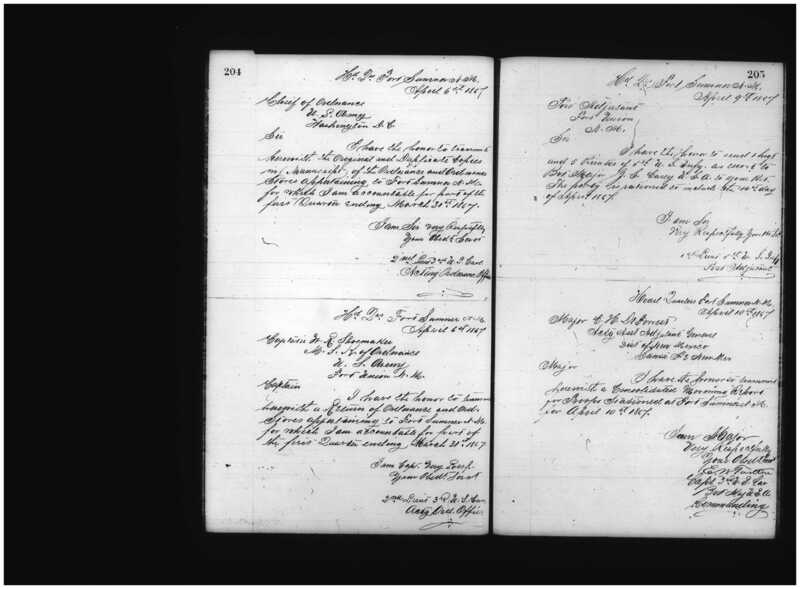 204
Hd. Qrs. Fort Sumner N.M.
April 6th 1867
Chief of Ordnance
U. S. Army
Washington D.C.
Sir
I have the honor to transmit
herewith the Original and Duplicate Copies
of the Ordnance and Ordnance
Stores appertaining to Fort Sumner N.M.
for which I am accountable for part of the
first Quarter ending March 31st 1867.
I am Sir Very Respectfully
Your Obedt Servt
2nd Lieut 3rd U.S. Cav
Acting Ordnance Officer
Hd. Qrs. Fort Sumner N.M.
April 6th 1867
Captain W. R. Shoemaker
M. S. K. of Ordnance
U. S. Army
Fort Union N.M.
Captain
I have the honor to transmit
herewith a Return of Ordnance and Ord.
Stores appertaining to Fort Sumner N.M.
for which I am accountable for part of
the first Quarter ending March 31st 1867
I am Capt. Very Resp.
Your Obedt. Servt
2nd Lieut 3d U.S. Cav
Actg Ord. Officer
205
Hd. Qrs. Fort Sumner N.M.
April 9th 1867
Post Adjutant
Fort Union
N. M.
Sir
I have the honor to send 1 Sergt
and 6 Privates of 5th U.S. Infy. as escort to
Bvt Major J. C. Casey U.S.A. to your Post.
The party is rationed to include the day
of April 1867.
I am Sir
Very Respectfully Your Obt Svt
1st Lieut 5th U.S. Infy
Post Adjutant
Head Quarters Fort Sumner N.M.
April 10th 1867
Major C. H. DeForrest
Actg Asst Adjutant General
Dist of New Mexico
Santa Fe New Mex
Major
I have the honor to transmit
herewith a Consolidated Morning Report
for Troops Stationed at Fort Sumner N.M.
for April 10th 1867.
I am Major
Very Respectfully
Your Obedt Servt
Capt 3rd U.S. Cav
Bvt Maj U.S.A.
Commanding